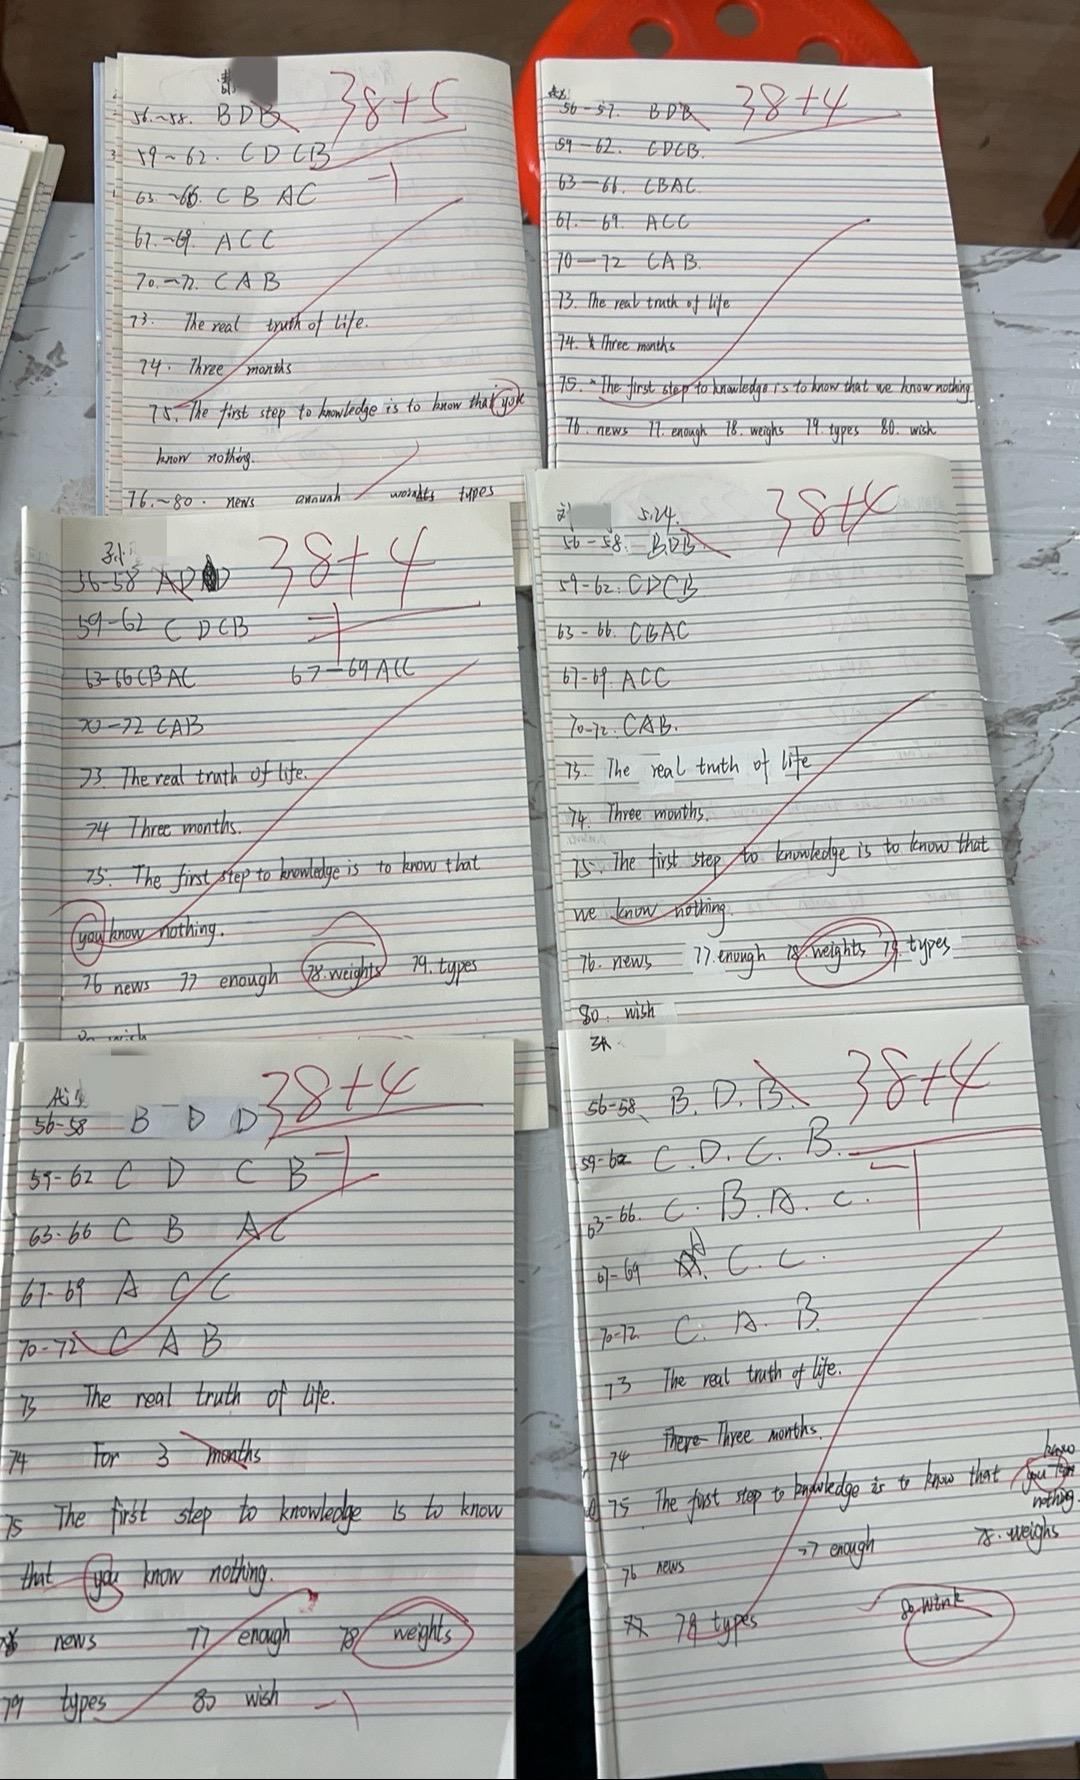 38+5
56.~58. BDB
59~62. CDCB
-1
63.~66. CBAC
67.~69. ACC
70.~72. CAB
73. The real truth of life.
74. Three months
75. The first step to knowledge is to know that you
know nothing.
76.~80. news enough weights types
38+4
56-57. BDB
59-62. CDCB.
63-66. CBAC
67.-69. ACC
70-72 CAB.
73. The real truth of life
74. Three months
75. The first step to knowledge is to know that we know nothing.
76. news 77. enough 78. weighs 79. types 80. wish
38+4
56-58
59-62 CDCB
63-66 CBAC 67-69 ACC
70-72 CAB
73 The real truth of life.
74 Three months.
75. The first step to knowledge is to know that
you know nothing.
76 news 77 enough 78. weights 79. types
80 wish
刘 5.24.
38+4
56-58. BDB.
59-62: CDCB
63-66. CBAC
67-69. ACC
70-72. CAB.
73. The real truth of life
74. Three months.
75. The first step to knowledge is to know that
we know nothing.
76. news 77. enough 78. weights 79. types
80. wish
38+4
56-58 B D D
59-62 C D C B -1
63-66 C B A C
67-69 A C C
70-72 C A B
73 The real truth of life.
74 For 3 months
75 The first step to knowledge is to know
that you know nothing.
76 news 77 enough 78 weights
79 types 80 wish -1
38+4
56-58 B. D. B.
59-62 C. D. C. B.
-1
63-66. C. B. A. C.
67-69 A C. C.
70-72 C. A. B.
73 The real truth of life.
74 There Three months.
75 The first step to knowledge is to know that you know
nothing
76 news 77 enough 78. weighs
77 79 types 80 wink